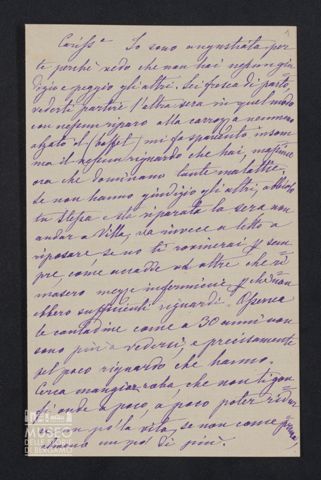 1
Cariss.a Io sono angustiata per
te perchè vedo che non hai nessun giu
dizio e peggio gli altri. Sei fresca di parto,
vederti partire l'altra sera in quel modo
con nessun riparo alla carrozza nemmeno
alzato il (soffet) mi fa spavento insom
ma il nessun riguardo che hai, massime
ora che dominano tante malattie.
Se non hanno giudizio gli altri, abbilo
tu stessa e sta riparata la sera non
andar a Villa, va invece a letto a
riposare se no ti rovinerai p sem
pre, come accadde ad altre che ri
masero mezze infermiccie p chè non
ebbero sufficienti riguardi. Osserva
le contadine come a 30 anni non
sono più a vedersi, e precisamente
pel poco riguardo che hanno.
Cerca mangiar roba, che non ti gon
fi onde a poco, a poco poter ridur
re un po' la vita, se non come prima,
almeno un po' di più.
MUSEO
DELLE STORIE
DI BERGAMO